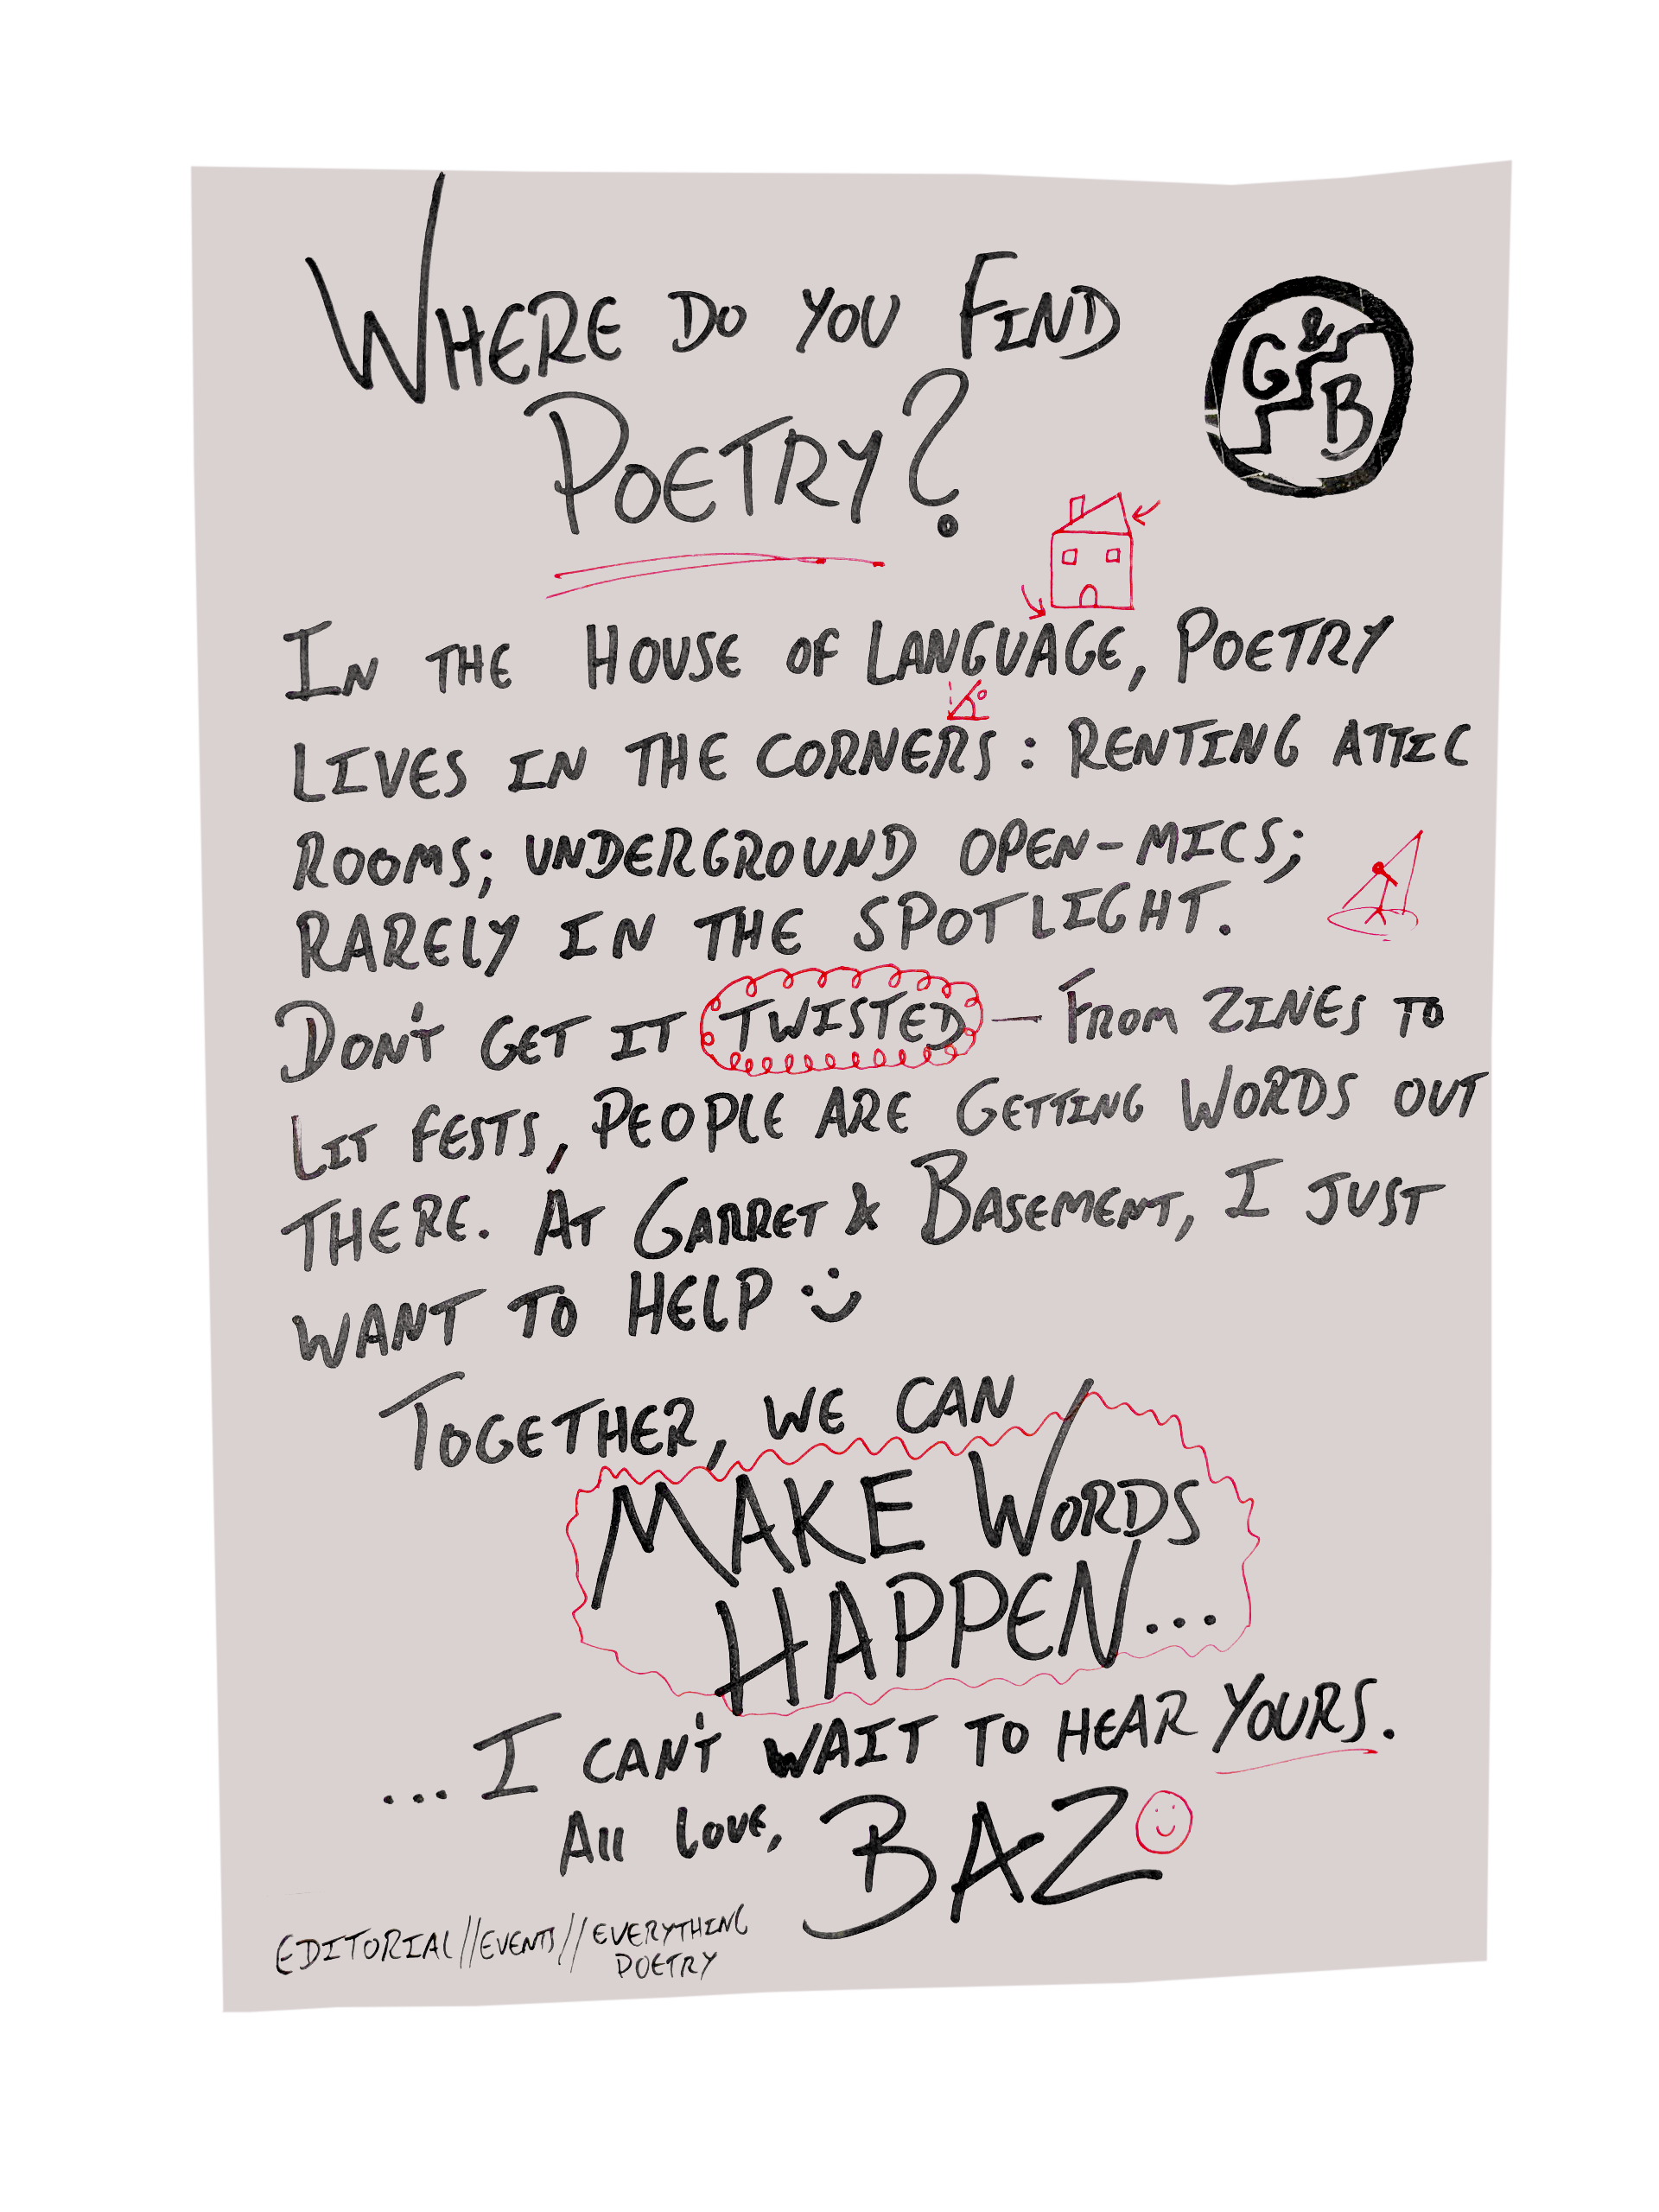 WHERE DO YOU FIND
POETRY?
G & B
IN THE HOUSE OF LANGUAGE, POETRY
LIVES IN THE CORNERS: RENTING ATTIC
ROOMS; UNDERGROUND OPEN-MICS;
RARELY IN THE SPOTLIGHT.
DON'T GET IT TWISTED — FROM ZINES TO
LIT FESTS, PEOPLE ARE GETTING WORDS OUT
THERE. AT GARRET & BASEMENT, I JUST
WANT TO HELP :)
TOGETHER, WE CAN
MAKE WORDS
HAPPEN...
...I CAN'T WAIT TO HEAR YOURS.
All love, BAZ
EDITORIAL//EVENTS//EVERYTHING
POETRY